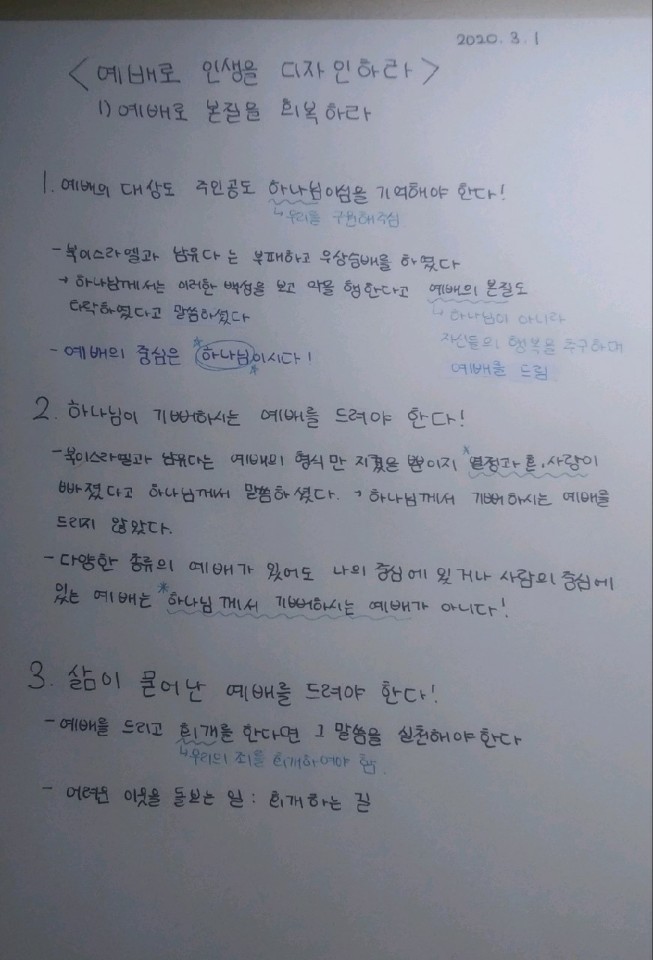 2020. 3. 1
<예배로 인생을 디자인하라>
1) 예배로 본질을 회복하라
1. 예배의 대상도 주인공도 하나님이심을 기억해야 한다!
↳ 우리를 구원해주심
- 북이스라엘과 남유다는 부패하고 우상숭배를 하였다
→ 하나님께서는 이러한 백성을 보고 악을 행한다고 예배의 본질도
타락하였다고 말씀하셨다
↳ 하나님이 아니라
자신들의 행복을 추구하며
예배를 드림
- 예배의 중심은 *하나님*이시다!
2. 하나님이 기뻐하시는 예배를 드려야 한다!
- 북이스라엘과 남유다는 예배의 형식만 지켰을 뿐이지 *열정과 혼, 사랑이
빠졌다고 하나님께서 말씀하셨다. → 하나님께서 기뻐하시는 예배를
드리지 않았다.
- 다양한 종류의 예배가 있어도 나의 중심에 있거나 사람의 중심에
있는 예배는 *하나님께서 기뻐하시는 예배가 아니다!
3. 삶이 묻어난 예배를 드려야 한다!
- 예배를 드리고 회개를 한다면 그 말씀을 실천해야한다
↳ 우리의 죄를 회개하여야 함.
- 어려운 이웃을 돌보는 일 : 회개하는 길